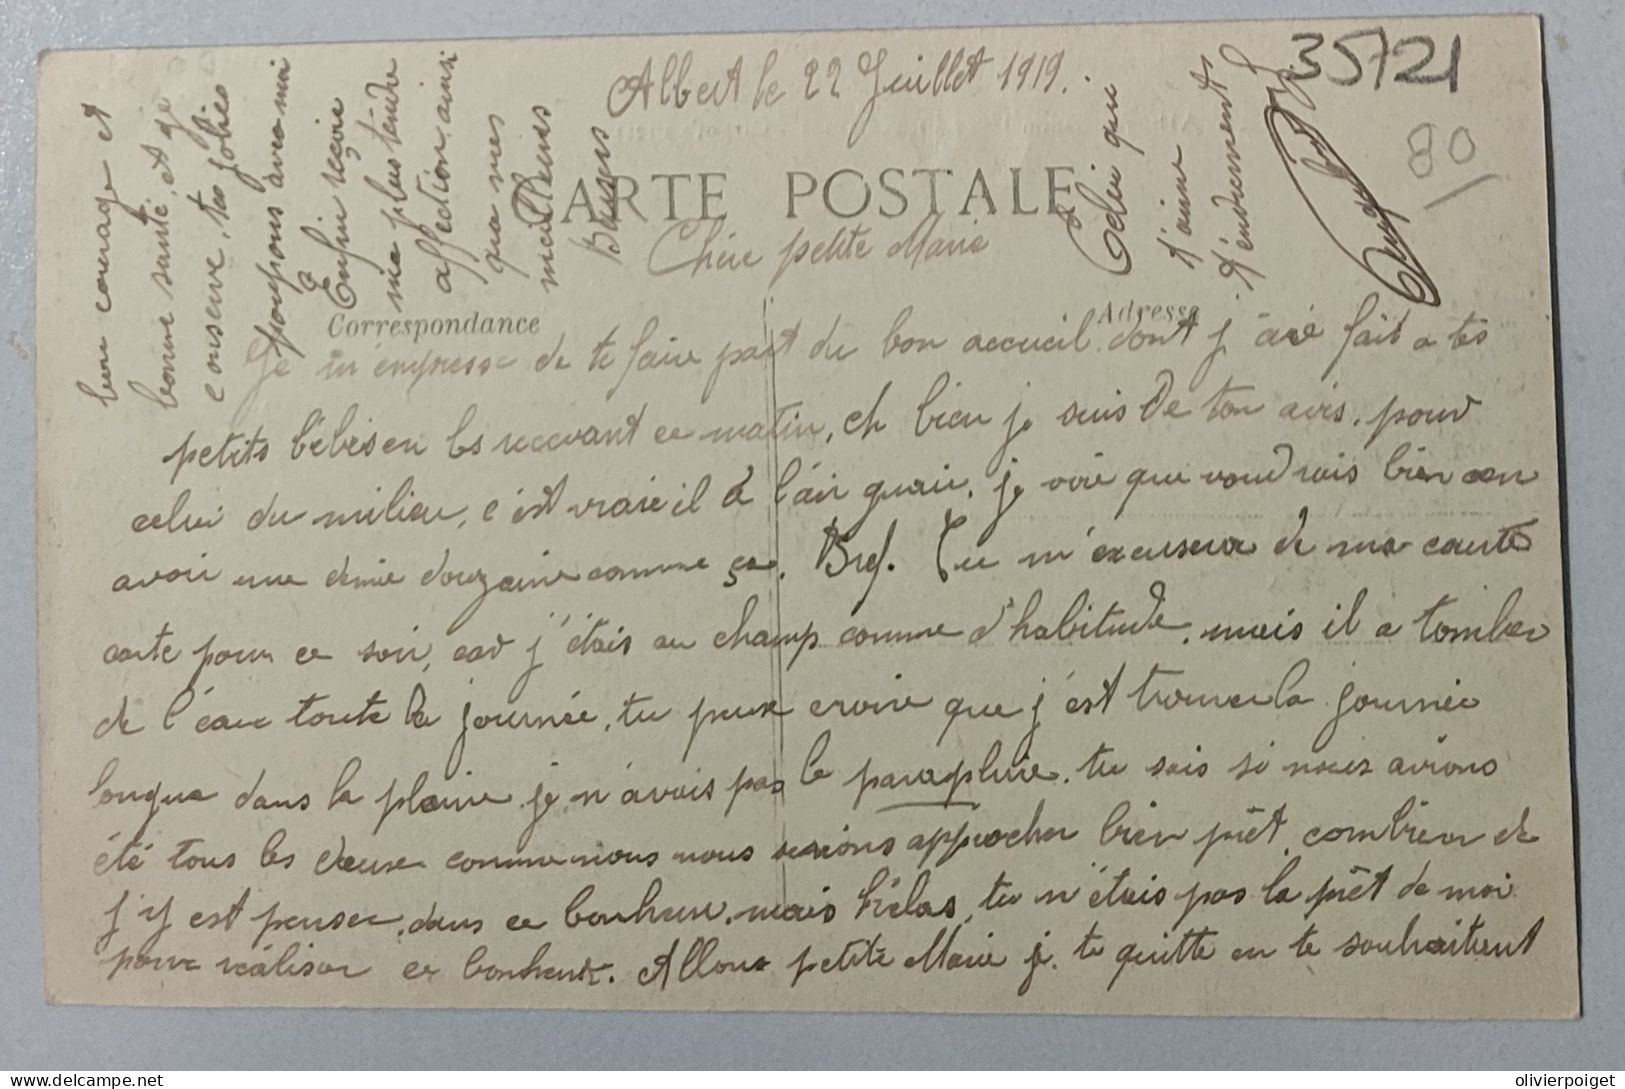 35721
80
Albert le 22 Juillet 1919.
CARTE POSTALE
Chère petite Marie
Correspondance
Adresse
Je m'empresse de te faire part du bon accueil dont j'aie fait a tes
petits bébés en les recevant ce matin, eh bien je suis De ton avis, pour
celui du milieu, c'est vraie il à l'air guaie, je voie que voudrais bien en
avoir une demie douzaine comme ça. Bref. Tu m'excusera de ma courte
carte pour ce soir, car j'étais au champ comme d'habitude, mais il a tomber
de l'eau toute la journée, tu peux croire que j'est trouver la journée
longue dans la plaine je n'avais pas le parapluie. tu sais si nous avions
été tous les deux comme nous nous serions approcher bien prêt, combien de
j'y est penser, dans ce bonheur, mais hélas, tu n'étais pas la prêt de moi
pour réaliser ce bonheur. Allons petite Marie je te quitte en te souhaitent
bon courage et
bonne santé, et ge
conserve, tes jolies
poupons avec moi
Enfin reçoie
ma plus tendre
affection, ainsi
que mes
meilleurs
Baisers
Celui qui
t'aime